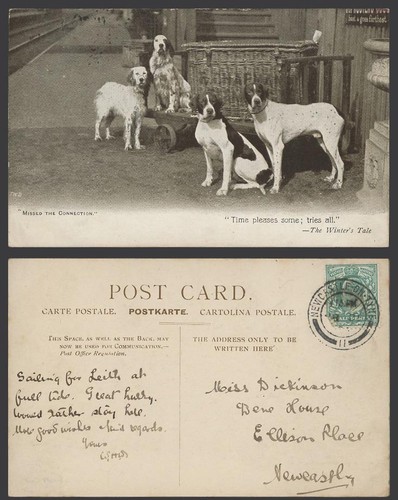 but a goon farthest
"MISSED THE CONNECTION."
"Time pleases some; tries all."
—The Winter's Tale
POST CARD.
CARTE POSTALE. POSTKARTE. CARTOLINA POSTALE.
THIS SPACE, AS WELL AS THE BACK, MAY
NOW BE USED FOR COMMUNICATION.—
Post Office Regulation.
THE ADDRESS ONLY TO BE
WRITTEN HERE
Sailing for Leith at
full tide. Great hurry.
Would rather stay here.
good wishes kind regards.
Yours
Miss Dickinson
Dene House
Ellison Place
Newcastle